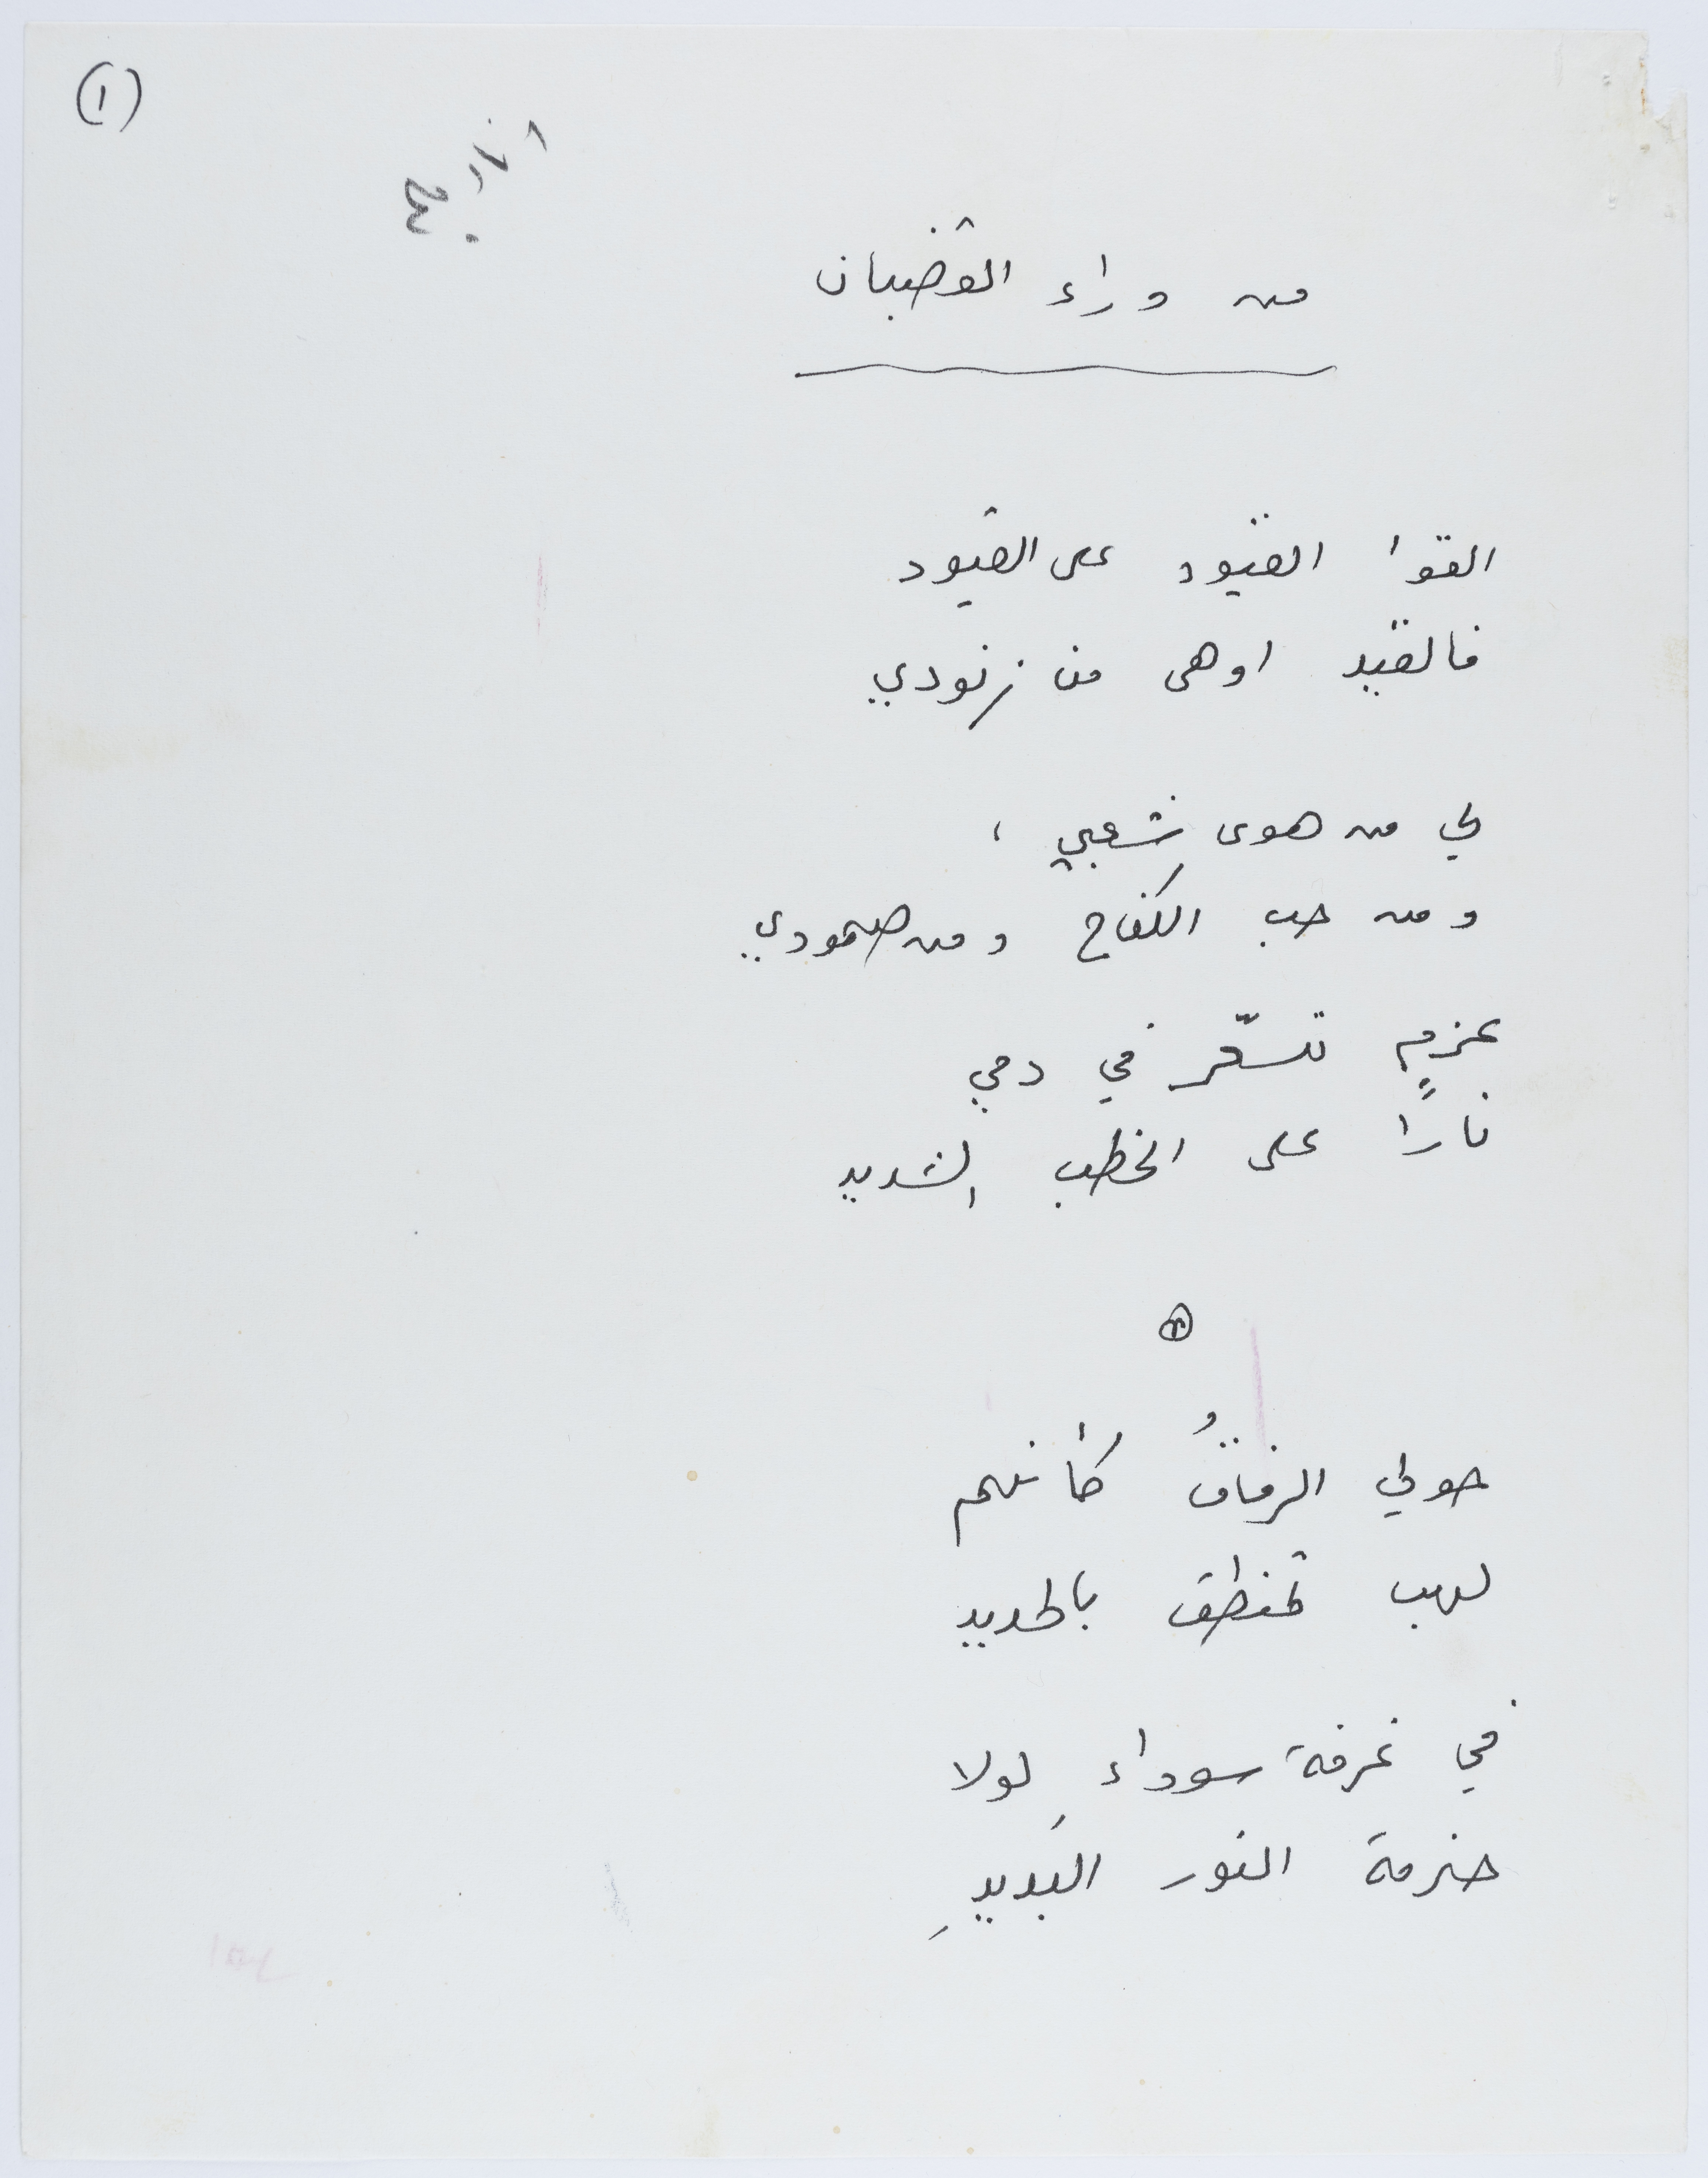 (١)
من وراء القضبان
القوا القيود على القيود
فالقيد اوهى من زنودي
لي من هوى شعبي ،
ومن حب الكفاح ومن صمودي
عزمٍ تسعّر في دمي
نارًا على الخطب الشديد
حولي الرفاقُ كأنهم
لهب تمنطق بالحديد
في غرفة سوداءِ لولا
حزمة النور البَديدِ